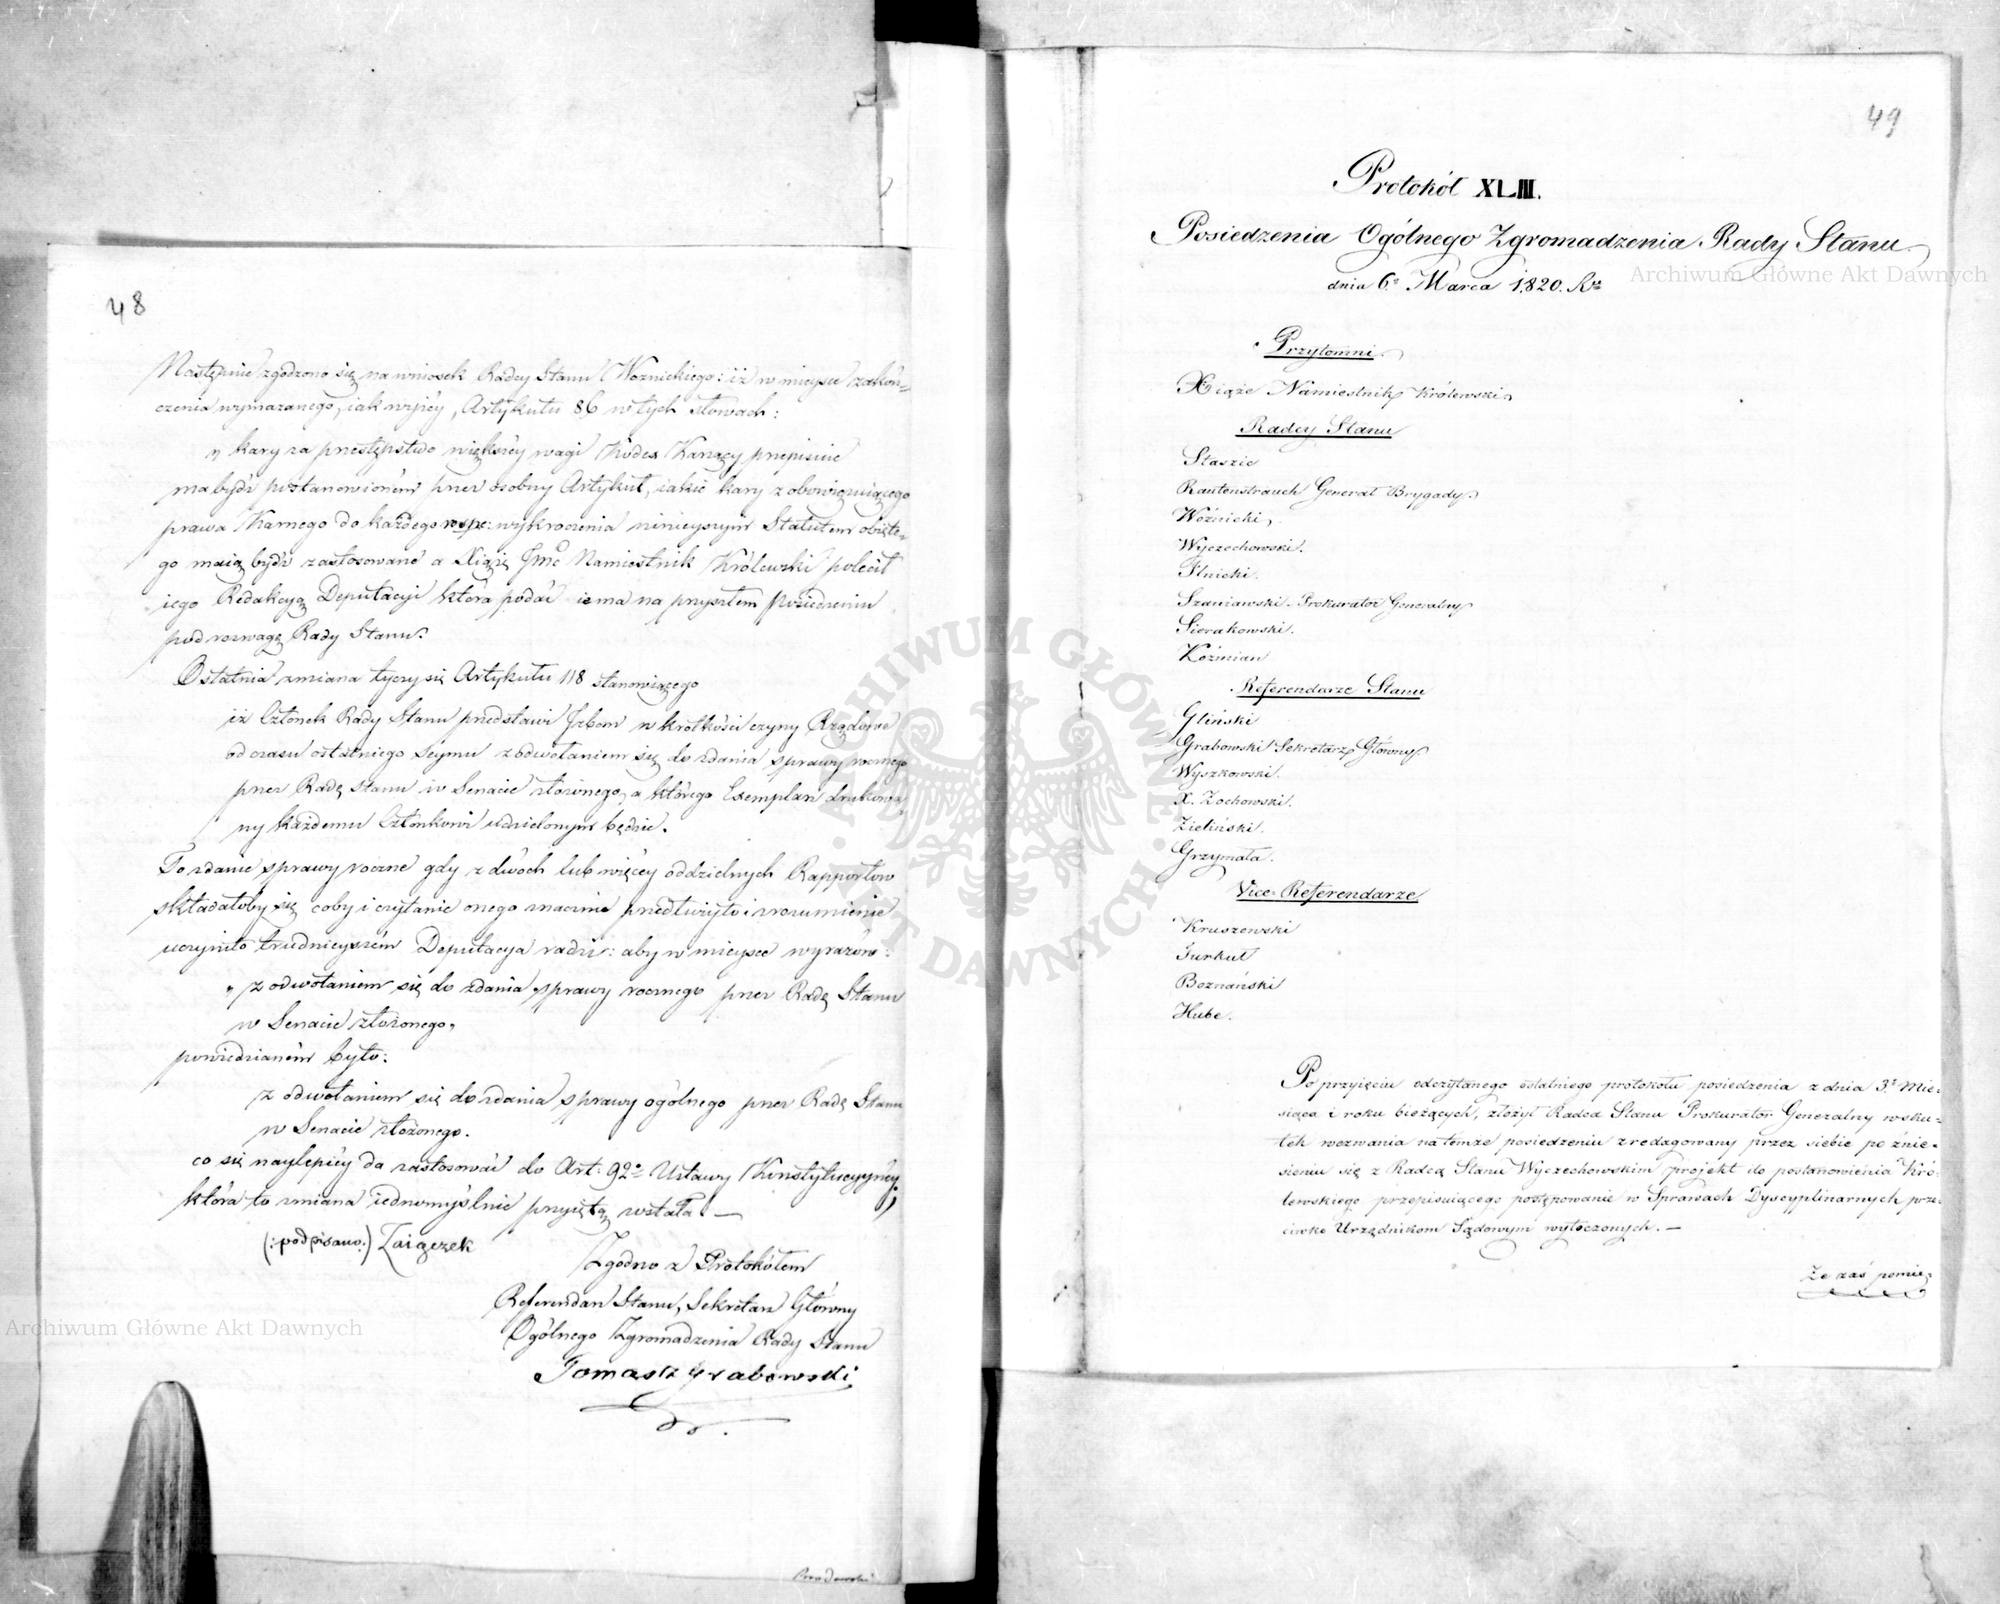 48
Następnie zgodzono się na wniosek Radcy Stanu Woznickiego: iż w mieysce zakoń-
czenia wymazanego, iak wyżey, Artykułu 86 w tych słowach:
„ kary za przestępstwo większey wagi Kodex Karzący przepisuie
ma bydź postanowionem przez osobny Artykuł, iakie kary z obowiązuiącego
prawa Karnego do każdego wykroczenia ninieyszym Statutem obięte-
go maią bydź zastosowane a Xiążę Jmć Namiestnik Królewski polecił
iego Redakcyą Deputacyi która podać ie ma na przyszłem Posiedzeniu
pod rozwagę Rady Stanu.
Ostatnia zmiana tyczy się Artykułu 118 stanowiącego
iż Członek Rady Stanu przedstawi Izbom w krótkości czyny Rządowe
od czasu ostatniego Seymu z odwołaniem się do zdania sprawy rocznego
przez Radę Stanu w Senacie złożonego, a którego Exemplarz drukowa
ny każdemu Członkowi udzielonym będzie.
To zdanie sprawy roczne gdy z dwóch lub więcey oddzielnych Rapportów
składałoby się coby i czytanie onego znacznie przedłużyło i zrozumienie
uczyniło trudnieyszem Deputacya radzi: aby w mieysce wyrazów:
„ z odwołaniem się do zdania sprawy rocznego przez Radę Stanu
w Senacie złożonego„
powiedzianém było:
z odwołaniem się do zdania sprawy ogólnego przez Radę Stanu
w Senacie złożonego.
co się naylepiéy da zastosować do Art: 92º Ustawy Konstytucyyney;
która to zmiana iednomyślnie przyiętą została. —
(:podpisano:) Zaiączek
Zgodno z Protokółem
Referendarz Stanu, Sekretarz Główny
Ogólnego Zgromadzenia Rady Stanu
Tomasz Grabowski
49
Protokół XLIII.
Posiedzenia Ogólnego Zgromadzenia Rady Stanu
dnia 6º Marca 1820. Rº
Przytomni
Xiąże Namiestnik Królewski
Radcy Stanu
Staszic
Rautenstrauch Generał Brygady
Woźnicki
Wyczechowski.
Ilnicki.
Szaniawski Prokurator Generalny
Sierakowski.
Koźmian
Referendarze Stanu
Gliński
Grabowski Sekretarz Główny
Wyszkowski.
X. Zochowski.
Zieliński.
Grzymała.
Vice-Referendarze
Kruszewski
Turkuł
Boznański
Hube.
Po przyięciu odczytanego ostatniego protokołu posiedzenia z dnia 3º Mie-
siąca i roku bieżących, złożył Radca Stanu Prokurator Generalny wsku-
tek wezwania na temże posiedzeniu zredagowany przez siebie po znie-
sieniu się z Radcą Stanu Wyczechowskim projekt do postanowienia Kró-
lewskiego przepisuiącego postępowanie w Sprawach Dyscyplinarnych prze-
ciwko Urzędnikom Sądowym wytoczonych. —
Ze zaś pomię-
Archiwum Główne Akt Dawnych
Archiwum Główne Akt Dawnych
ARCHIWUM GŁÓWNE AKT DAWNYCH